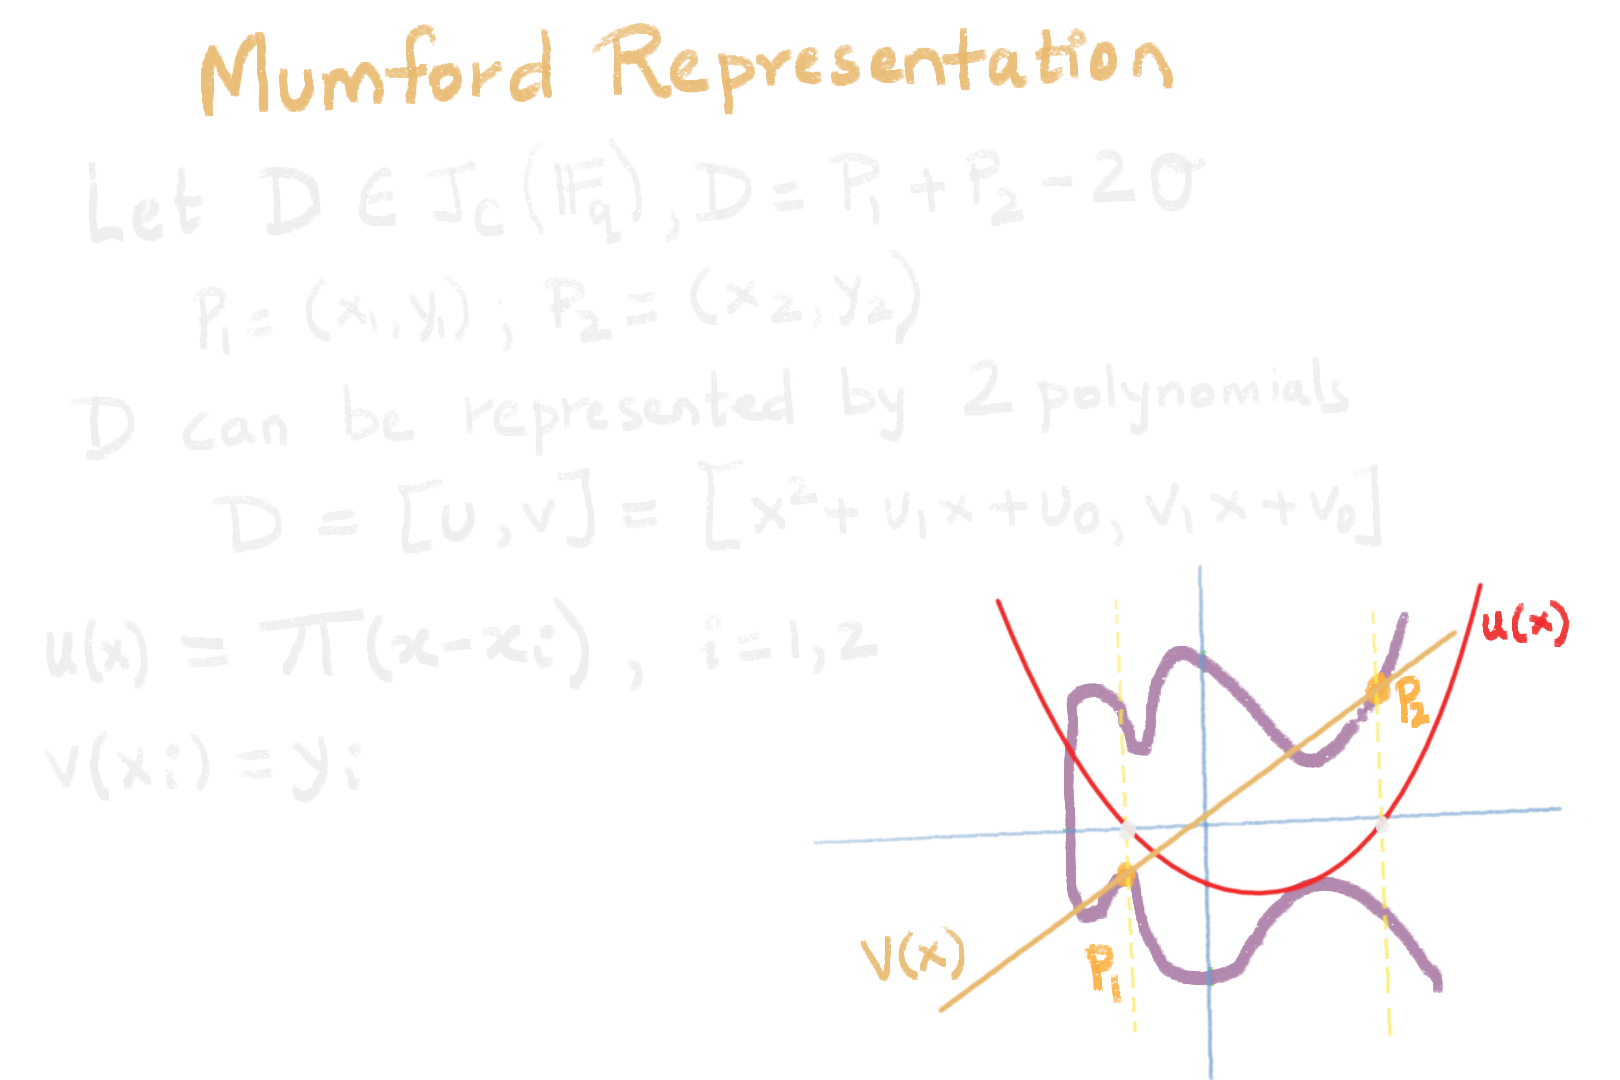 Mumford Representation
Let D ∈ J_C(𝔽_q), D = P₁ + P₂ - 2O
P₁ = (x₁, y₁) ; P₂ = (x₂, y₂)
D can be represented by 2 polynomials
D = [u, v] = [x² + u₁x + u₀, v₁x + v₀]
u(x) = π(x - xi), i = 1, 2
v(xi) = yi
u(x)
P₂
V(x)
P₁